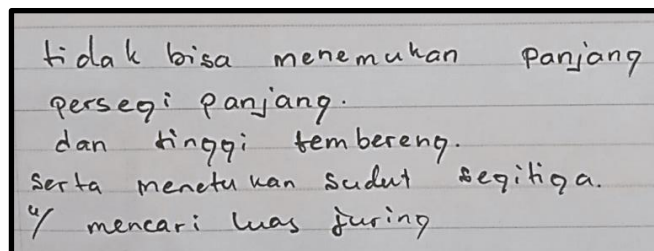 tidak bisa menemukan panjang
persegi panjang.
dan tinggi tembereng.
serta menetukan sudut segitiga.
u/ mencari luas juring